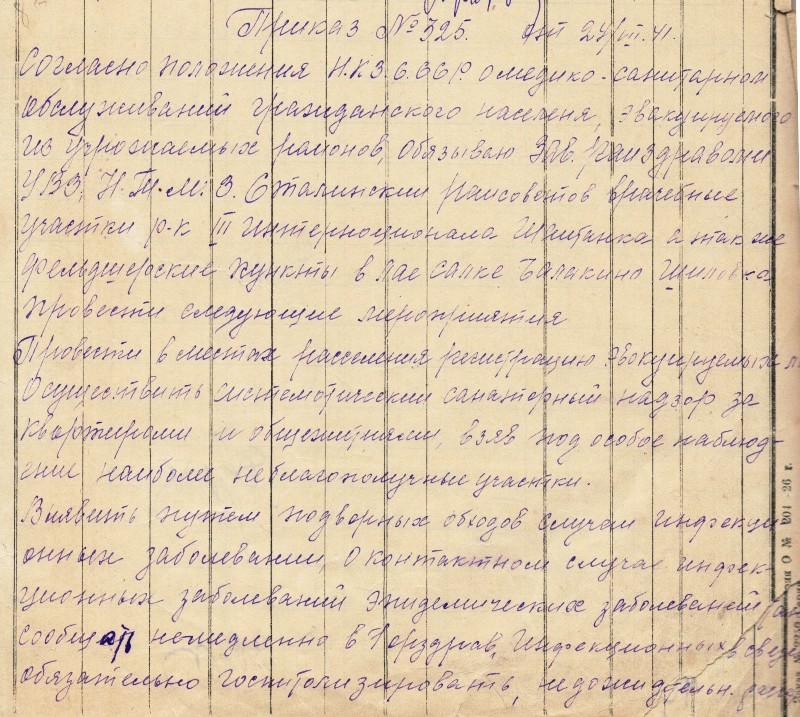 Приказ № 325. от 24/VII.41.
Согласно положения Н.К.З. о медико-санитарном
обслуживаний гражданского населеня, эвакуируемого
из угрожаемых районов, обязываю Зав. райздравами
УВЗ, Н.Т.М.З. Сталинский райсоветов врачебные
участки р-к III интернационала а так же
фельдшерские пункты в лае салке Балакино Шиловка
провести следующие мероприятия
Провести в местах расселения регистрацию эвакуируемых
Осуществить систематический санитарный надзор за
квартирами и общежитиями, взяв под особое наблюд-
ение наиболее неблагополучные участки.
Выявить путем подворных обходов случаи инфекци
онных заболевании, О контактном случае инфек-
ционных заболеваний эпидемических заболеваний
сообщать немедленно в Горздрав, Инфекционных
обязательно госпитализировать,